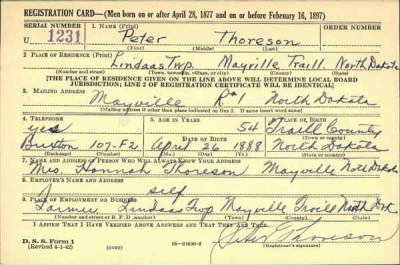 REGISTRATION CARD—(Men born on or after April 28, 1877 and on or before February 16, 1897)
SERIAL NUMBER 1. NAME (Print) ORDER NUMBER
U 1231 Peter Thoreson
(First) (Middle) (Last)
2. PLACE OF RESIDENCE (Print)
Lindaas Twp. Mayville Traill North Dakota
(Number and street) (Town, township, village, or city) (County) (State)
[THE PLACE OF RESIDENCE GIVEN ON THE LINE ABOVE WILL DETERMINE LOCAL BOARD
JURISDICTION; LINE 2 OF REGISTRATION CERTIFICATE WILL BE IDENTICAL]
3. MAILING ADDRESS
Mayville R#1 North Dakota
[Mailing address if other than place indicated on line 2. If same insert word same]
4. TELEPHONE 5. AGE IN YEARS 6. PLACE OF BIRTH
yes 54 Traill County
DATE OF BIRTH (Town or county)
Buxton 107-F2 April 26 1888 North Dakota
(Exchange) (Number) (Mo.) (Day) (Yr.) (State or country)
7. NAME AND ADDRESS OF PERSON WHO WILL ALWAYS KNOW YOUR ADDRESS
Mrs. Hannah Thoreson Mayville North Dakota
8. EMPLOYER'S NAME AND ADDRESS
self
9. PLACE OF EMPLOYMENT OR BUSINESS
Farmer Lindaas Twp Mayville Traill North Dak
(Number and street or R. F. D. number) (Town) (County) (State)
I AFFIRM THAT I HAVE VERIFIED ABOVE ANSWERS AND THAT THEY ARE TRUE.
D. S. S. Form 1 Peter Thoreson
(Revised 4-1-42) 16—21630-2 (Registrant's signature)